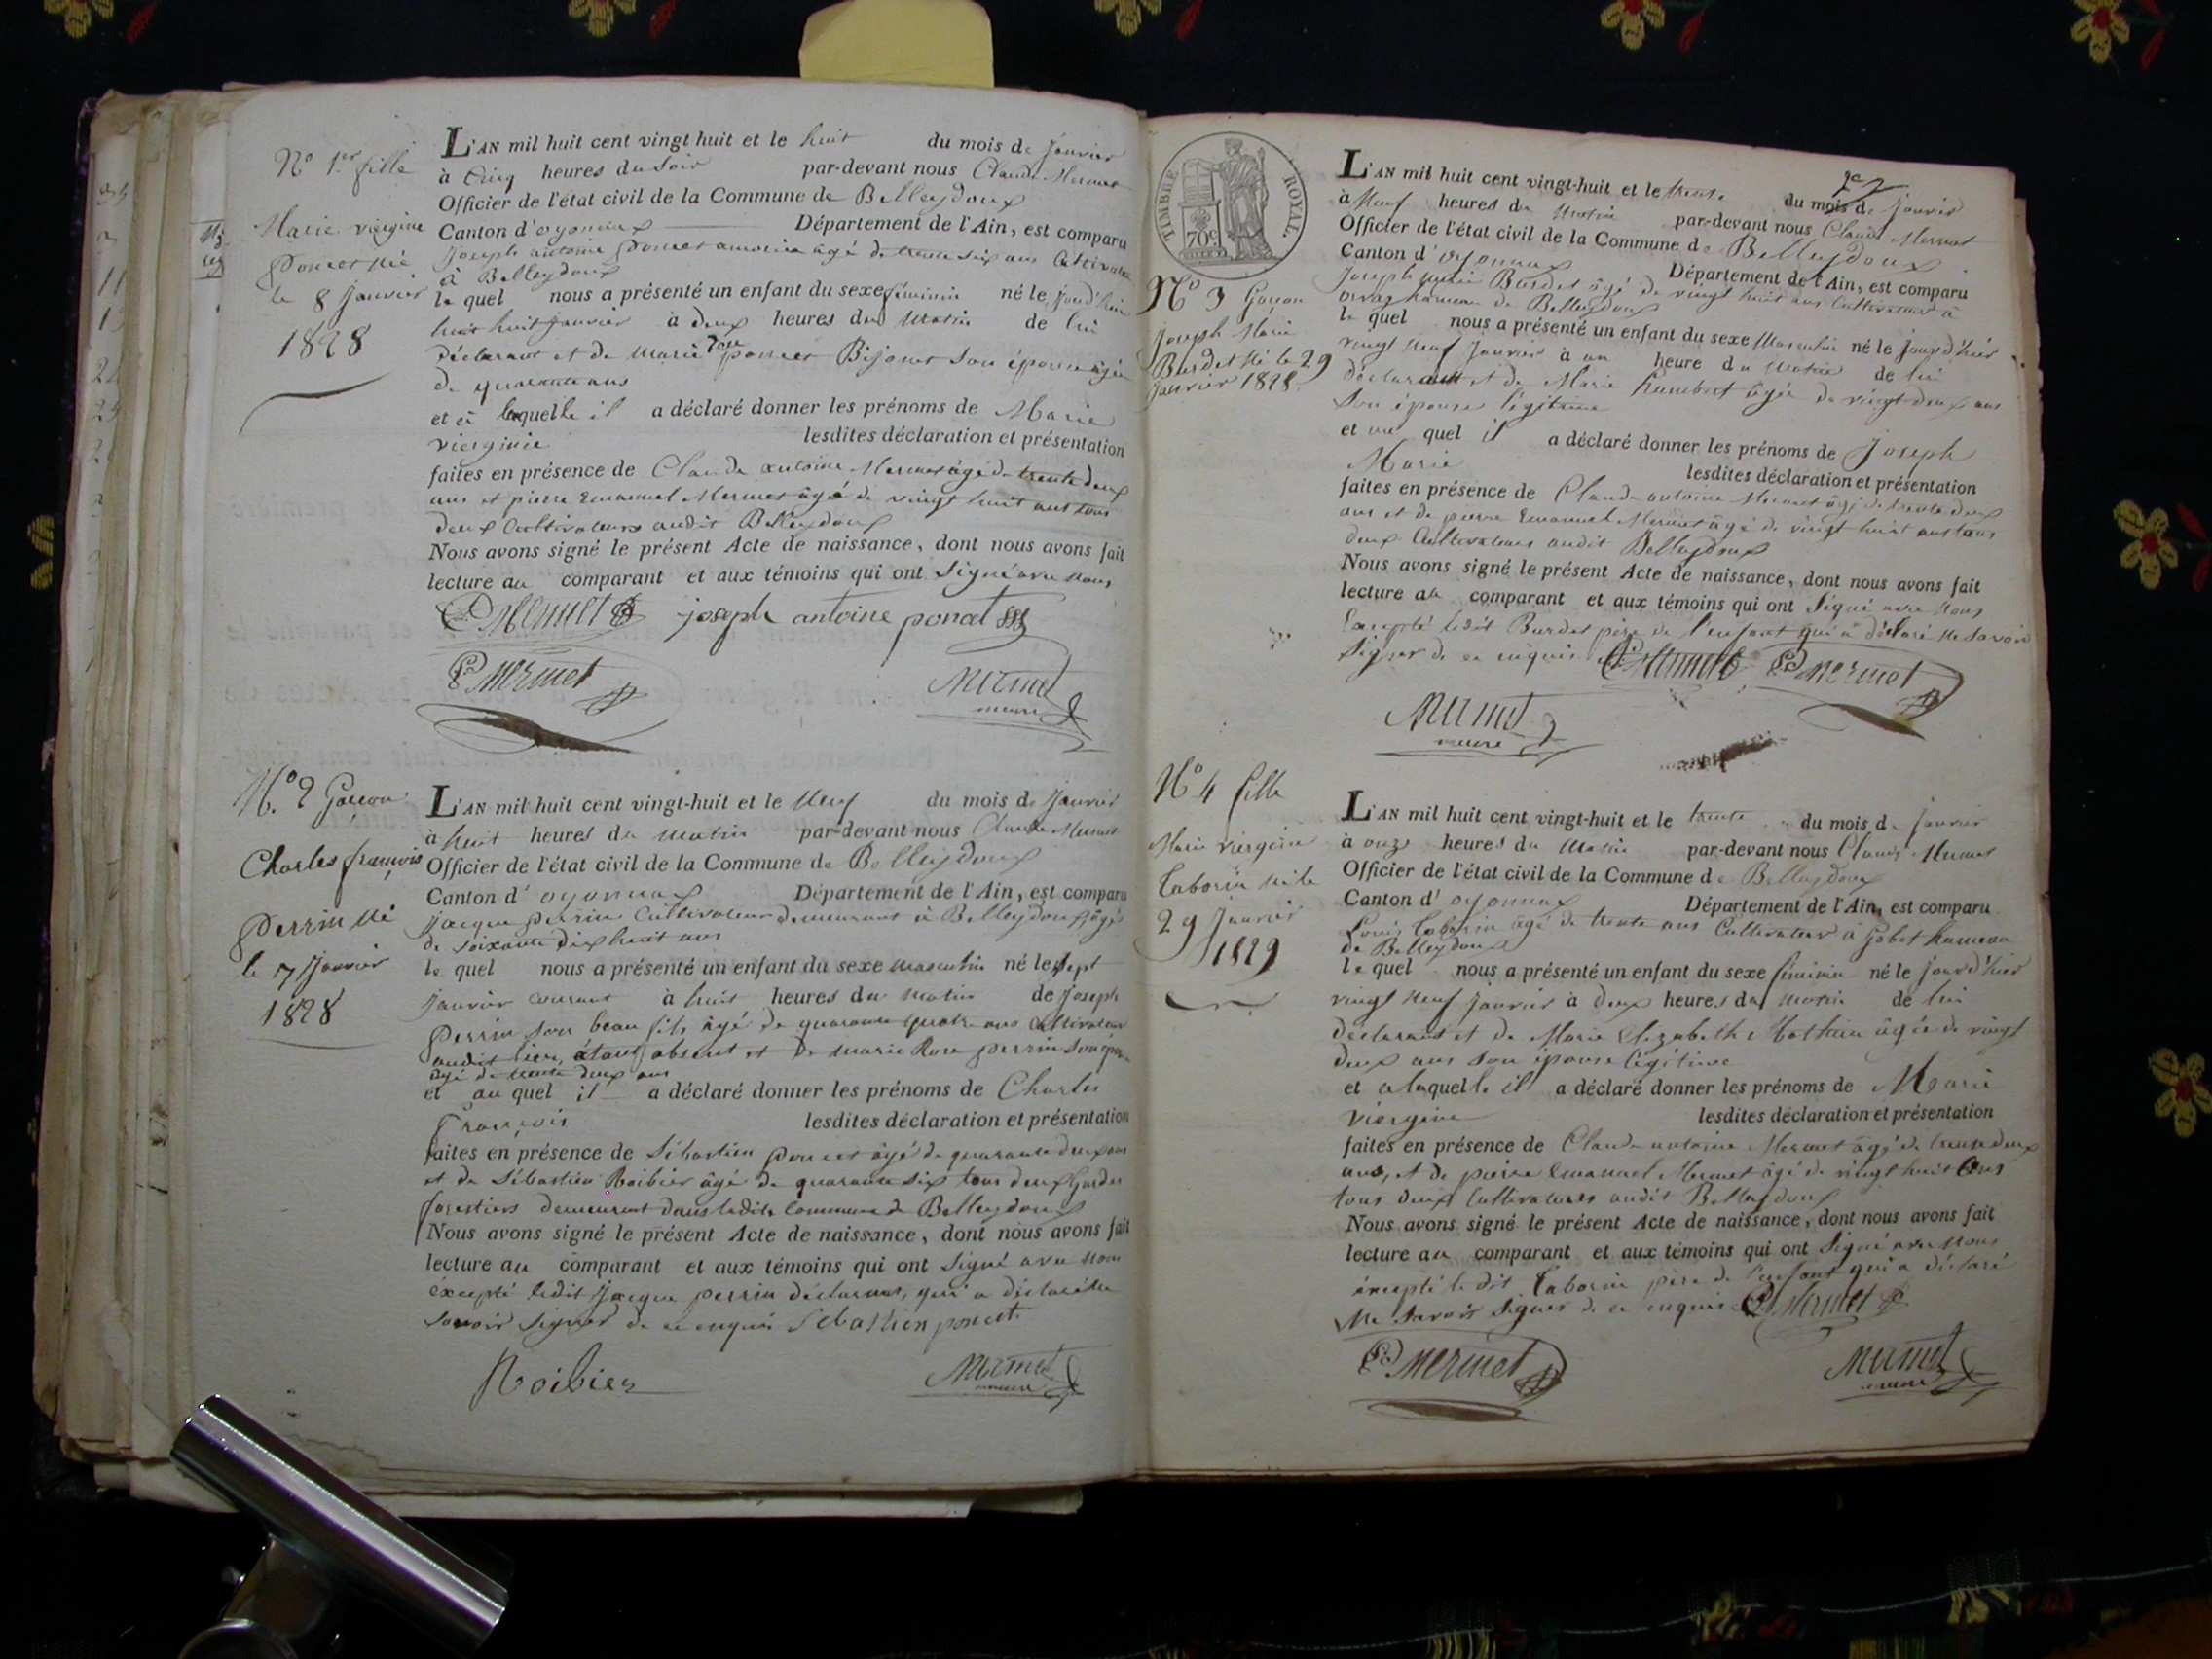 No 1er fille
Marie viergine
poncet née
le 8 janvier
1828
L'AN mil huit cent vingt huit et le huit du mois de janvier
à Cinq heures du Soir par-devant nous Claude Mermet
Officier de l'état civil de la Commune de Belleydoux
Canton d'oyonnax Département de l'Ain, est comparu
Joseph antoine poncet âgé de trente six ans Cultivateur
à Belleydoux
le quel nous a présenté un enfant du sexe féminin né le jourd'hui
huit janvier à deux heures du Matin de lui
déclarant et de Marie poncet Bijouet son épouse âgée
de quarante ans
et à laquelle il a déclaré donner les prénoms de Marie
vierginie lesdites déclaration et présentation
faites en présence de Claude antoine Mermet âgé de trente deux
ans et pierre Emanuel Mermet âgé de vingt huit ans tous
deux Cultivateurs audit Belleydoux
Nous avons signé le présent Acte de naissance, dont nous avons fait
lecture au comparant et aux témoins qui ont Signé avec nous
Mermet joseph antoine poncet
Mermet Mermet
maire
No 2 Garçon
Charles françois
perrin né
le 7 Janvier
1828
L'AN mil huit cent vingt-huit et le Neuf du mois de Janvier
à huit heures du matin par-devant nous Claude Mermet
Officier de l'état civil de la Commune de Belleydoux
Canton d'oyonnax Département de l'Ain, est comparu
jacque perrin Cultivateur demeurant à Belleydoux âgé
de soixante dix huit ans
le quel nous a présenté un enfant du sexe masculin né le sept
janvier courant à huit heures du matin de joseph
perrin son beau fils âgé de quarante quatre ans Cultivateur
audit lieu, étant absent et de marie Rose perrin son épouse
âgé de trente deux ans
et au quel il a déclaré donner les prénoms de Charles
François lesdites déclaration et présentation
faites en présence de Sébastien poncet âgé de quarante deux ans
et de Sébastien Roibier âgé de quarante six tous deux Gardes
forestiers demeurant dans ladite Commune de Belleydoux
Nous avons signé le présent Acte de naissance, dont nous avons fait
lecture au comparant et aux témoins qui ont signé avec nous
excepté ledit jacque perrin déclarant, qui a déclaré ne
savoir signer de ce enquis Sebastien poncet
Roibier Mermet
maire
TIMBRE ROYAL
70c
No 3 Garçon
joseph Marie
Burdet né le 29
janvier 1828
L'AN mil huit cent vingt-huit et le trente du mois de janvier
à Neuf heures du Matin par-devant nous Claude Mermet
Officier de l'état civil de la Commune de Belleydoux
Canton d'oyonnax Département de l'Ain, est comparu
Joseph marie Burdet âgé de vingt huit ans Cultivateur à
orvaz hameau de Belleydoux
le quel nous a présenté un enfant du sexe Masculin né le jourd'hier
vingt neuf janvier à un heure du Matin de lui
déclarant et de Marie humbert âgée de vingt deux ans
son épouse légitime
et au quel il a déclaré donner les prénoms de Joseph
Marie lesdites déclaration et présentation
faites en présence de Claude antoine Mermet âgé de trente deux
ans et de pierre Emanuel Mermet âgé de vingt huit ans tous
deux Cultivateurs audit Belleydoux
Nous avons signé le présent Acte de naissance, dont nous avons fait
lecture au comparant et aux témoins qui ont Signé avec nous
Excepté ledit Burdet père de l'enfant qui a déclaré ne savoir
signer de ce enquis Mermet Mermet
Mermet
maire
No 4 fille
Marie viergine
Taborin née le
29 janvier
1829
L'AN mil huit cent vingt-huit et le trente du mois de janvier
à onze heures du Matin par-devant nous Claude Mermet
Officier de l'état civil de la Commune de Belleydoux
Canton d'oyonnax Département de l'Ain, est comparu
Louis Taborin âgé de trente ans Cultivateur à Gobet hameau
de Belleydoux
le quel nous a présenté un enfant du sexe féminin né le jourd'hier
vingt neuf janvier à deux heures du matin de lui
déclarant et de Marie Elizabeth Mathieu âgée de vingt
deux ans son épouse légitime
et a laquelle il a déclaré donner les prénoms de Marie
viergine lesdites déclaration et présentation
faites en présence de Claude antoine Mermet âgé de trente deux
ans, et de pierre Emanuel Mermet âgé de vingt huit ans
tous deux Cultivateurs audit Belleydoux
Nous avons signé le présent Acte de naissance, dont nous avons fait
lecture au comparant et aux témoins qui ont Signé avec nous
excepté le dit Taborin père de l'enfant qui a déclaré
Ne Savoir Signer de ce enquis Mermet
Mermet Mermet
maire